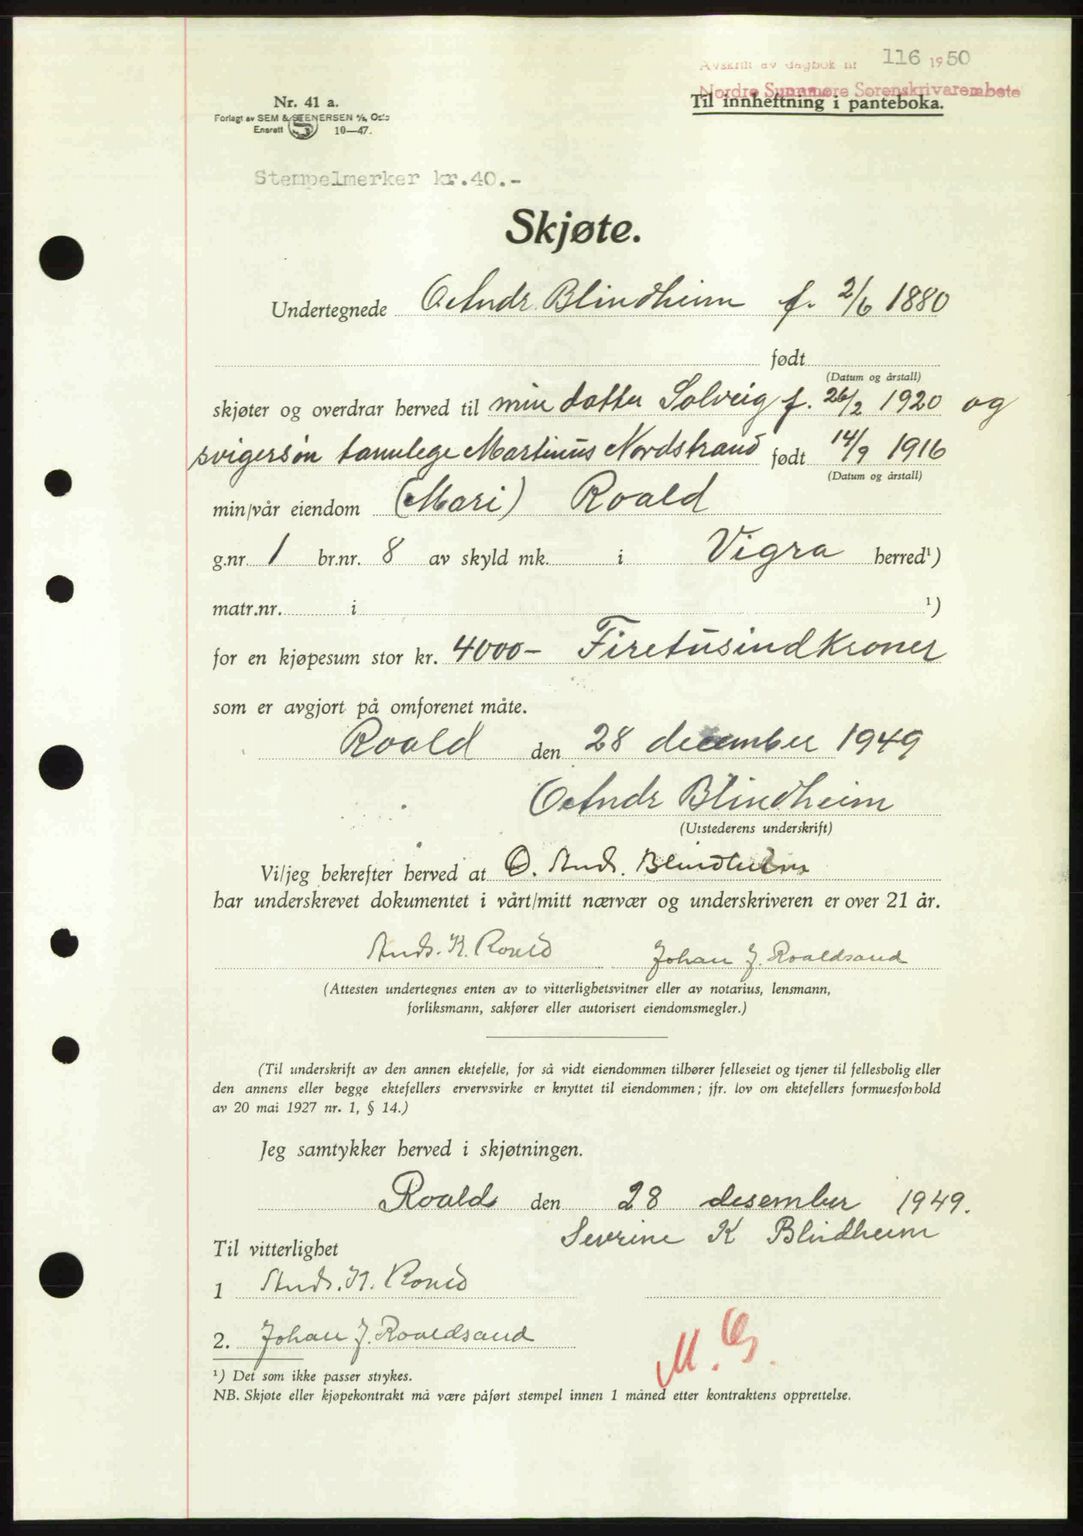 Avskrift av dagbok nr 116 1950
Nordre Sunnmøre Sorenskrivarembete
Til innheftning i panteboka.
Nr. 41 a.
Forlagt av SEM & STENERSEN A/S, Oslo
Enerett 10—47.
Stempelmerker kr.40.-
Skjøte.
Undertegnede O Andr. Blindheim f. 2/6 1880
født
(Datum og årstall)
skjøter og overdrar herved til min datter Solveig f. 26/2 1920 og
svigersøn tannlege Martinus Nordstrand født 14/9 1916
(Datum og årstall)
min/vår eiendom (Mari) Roald
g.nr. 1 br.nr. 8 av skyld mk. i Vigra herred¹)
matr.nr. i ¹)
for en kjøpesum stor kr. 4000- Firetusind kroner
som er avgjort på omforenet måte.
Roald den 28 december 1949
O Andr Blindheim
(Utstederens underskrift)
Vi/jeg bekrefter herved at O. And. Blindheim
har underskrevet dokumentet i vårt/mitt nærvær og underskriveren er over 21 år.
Ands. K. Roald Johan J. Roaldsand
(Attesten undertegnes enten av to vitterlighetsvitner eller av notarius, lensmann,
forliksmann, sakfører eller autorisert eiendomsmegler.)
(Til underskrift av den annen ektefelle, for så vidt eiendommen tilhører felleseiet og tjener til fellesbolig eller
den annens eller begge ektefellers ervervsvirke er knyttet til eiendommen; jfr. lov om ektefellers formuesforhold
av 20 mai 1927 nr. 1, § 14.)
Jeg samtykker herved i skjøtningen.
Roald den 28 desember 1949.
Severine K Blindheim
Til vitterlighet
1 Ands. K. Roald
2. Johan J. Roaldsand
M. G.
¹) Det som ikke passer strykes.
NB. Skjøte eller kjøpekontrakt må være påført stempel innen 1 måned etter kontraktens opprettelse.